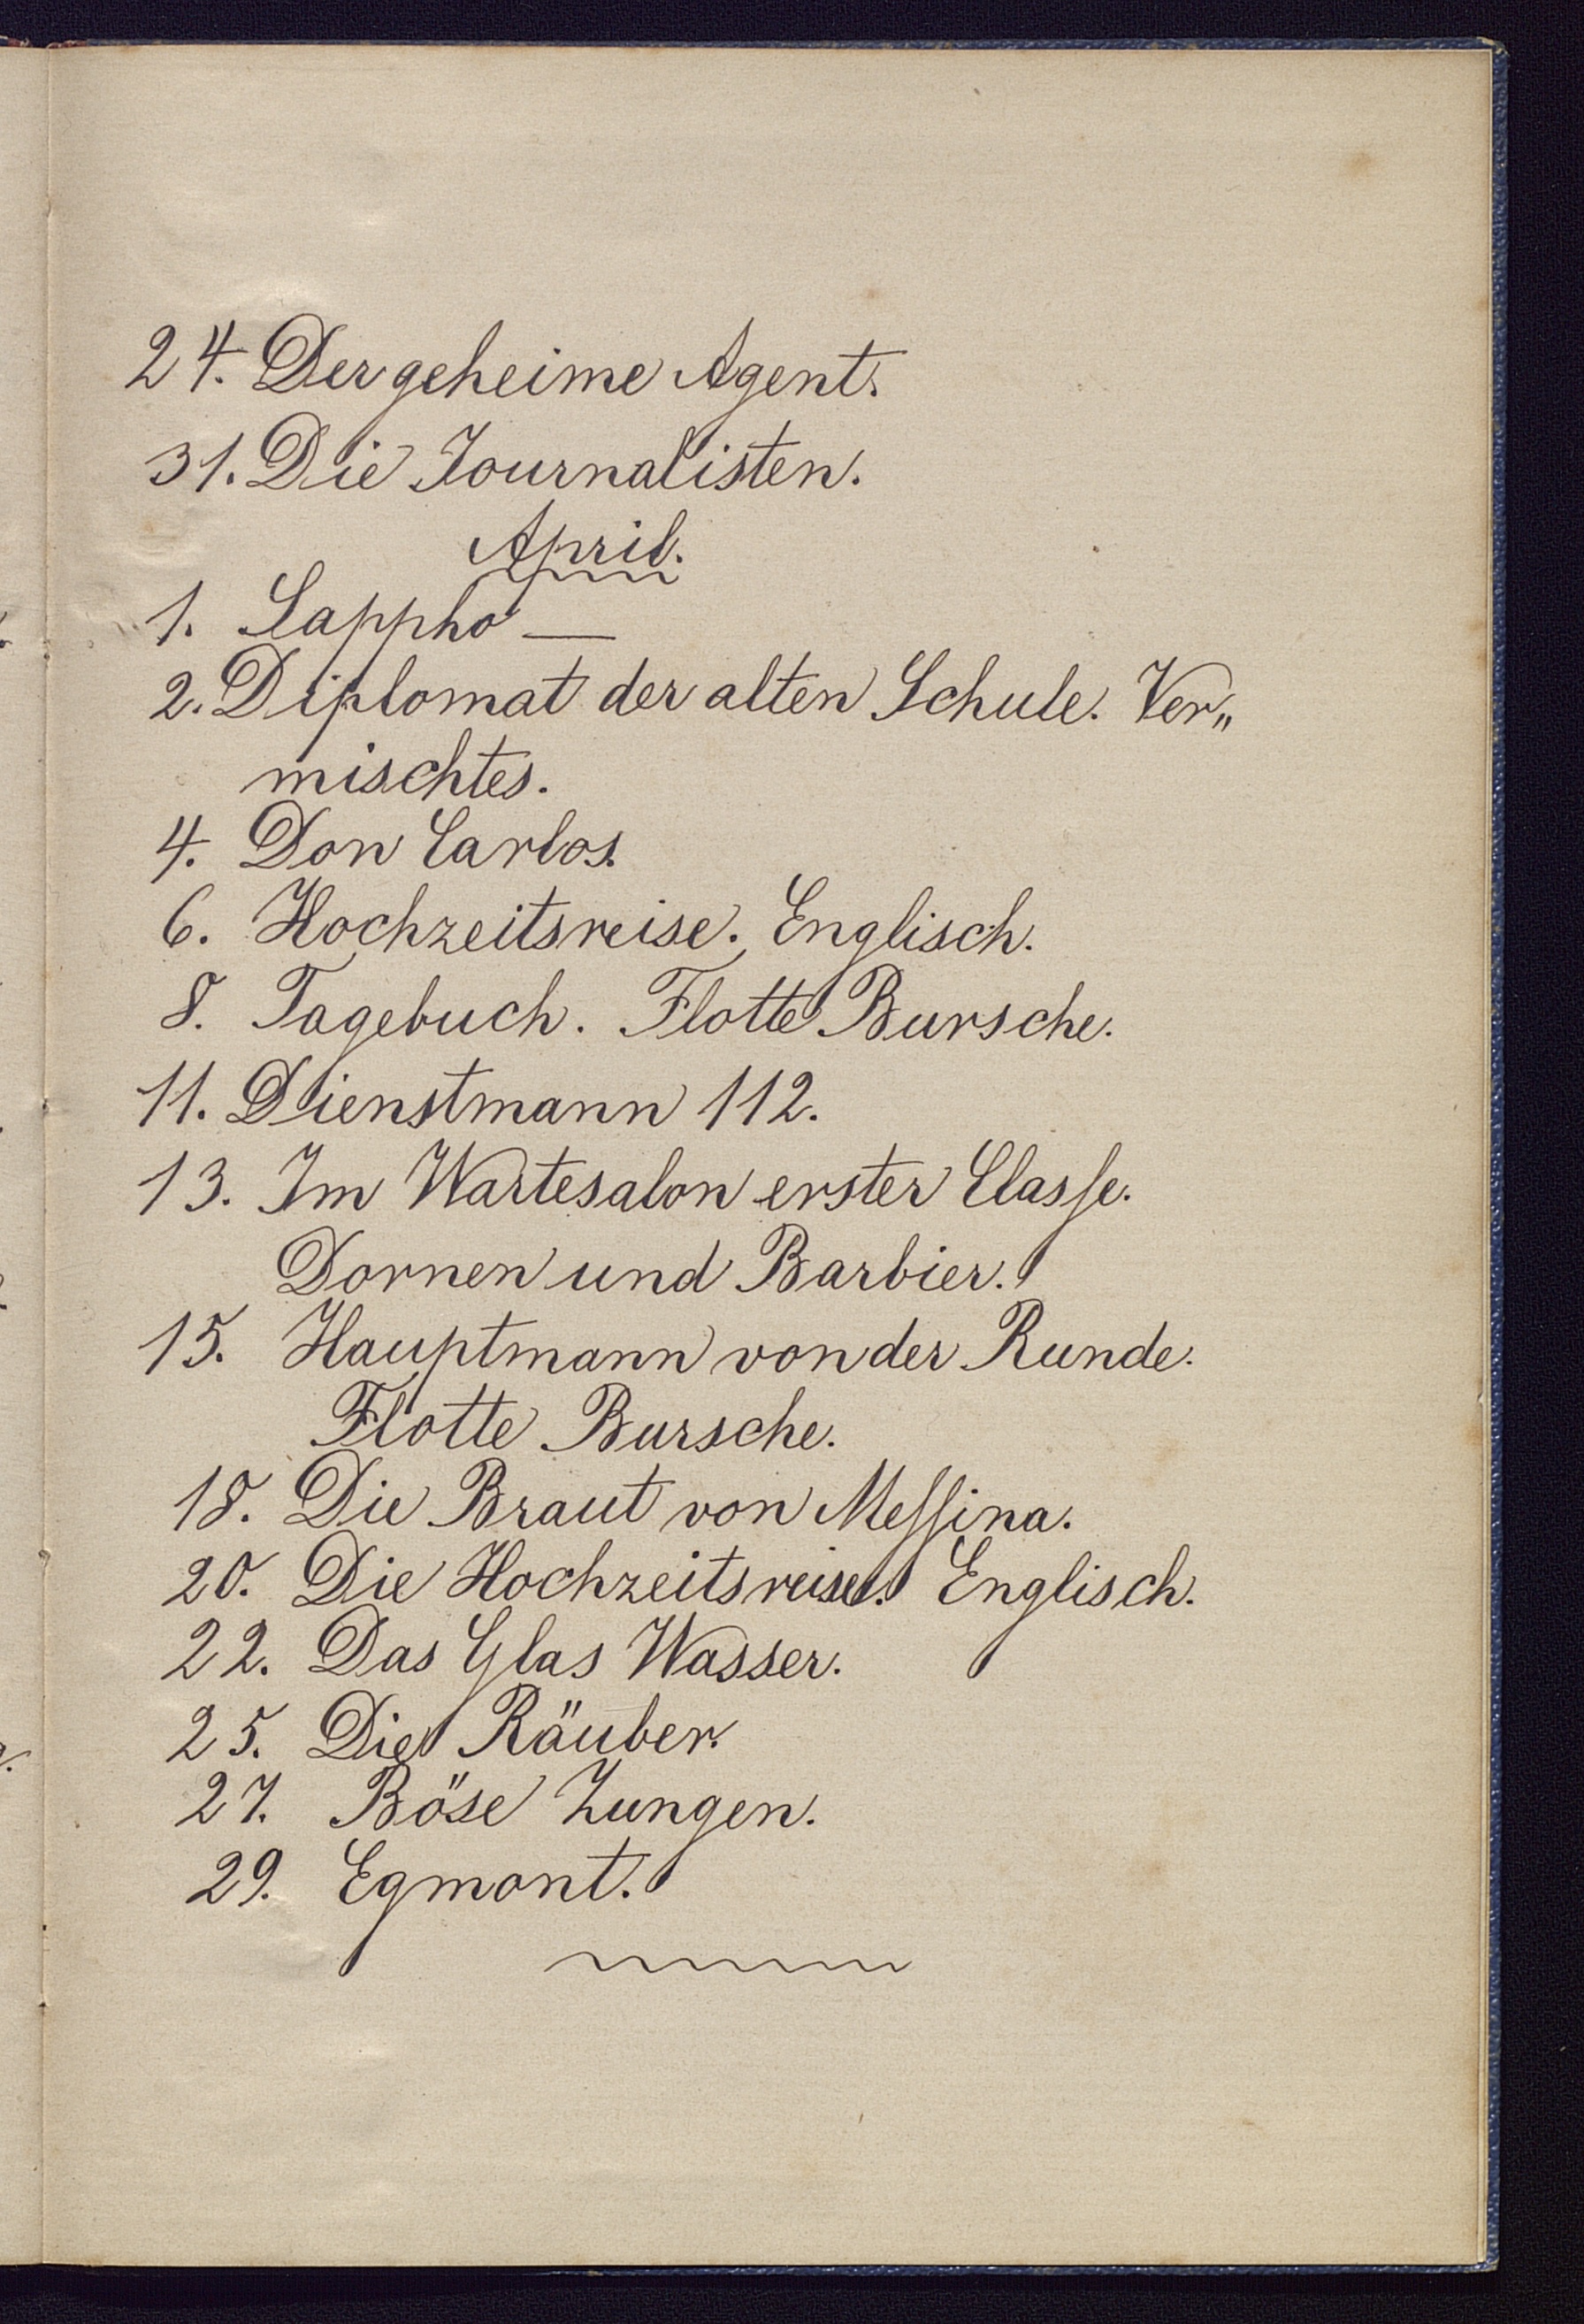 24. Der geheime Agent.
31. Die Journalisten.
April.
1. Sappho —
2. Diplomat der alten Schule. Ver„
mischtes.
4. Don Carlos.
6. Hochzeitsreise. Englisch.
8. Tagebuch. Flotte Bursche.
11. Dienstmann 112.
13. Im Wartesalon erster Classe.
Dornen und Barbier.
15. Hauptmann von der Runde.
Flotte Bursche.
18. Die Braut von Messina.
20. Die Hochzeitsreise. Englisch.
22. Das Glas Wasser.
25. Die Räuber.
27. Böse Zungen.
29. Egmont.